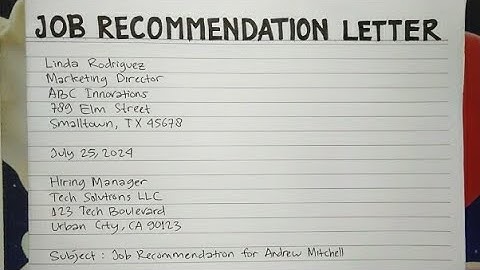 JOB RECOMMENDATION LETTER
Linda Rodriguez
Marketing Director
ABC Innovations
789 Elm Street
Smalltown, TX 45678
July 25, 2024
Hiring Manager
Tech Solutions LLC
123 Tech Boulevard
Urban City, CA 90123
Subject : Job Recommendation for Andrew Mitchell